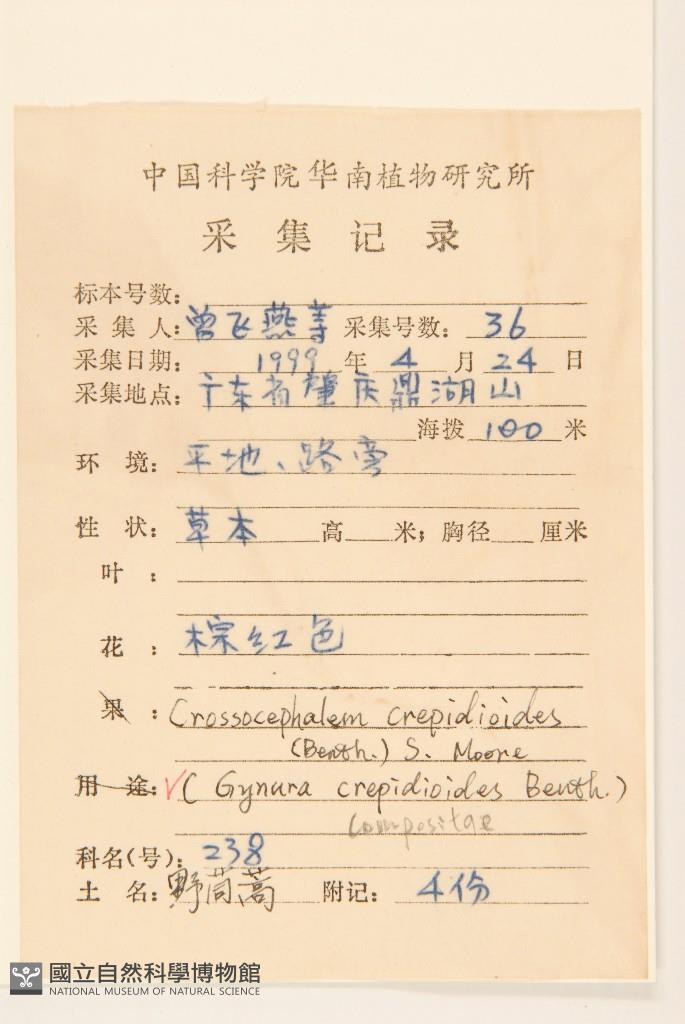 中国科学院华南植物研究所
采集记录
标本号数:
采集人: 曾飞燕等 采集号数: 36
采集日期: 1999 年 4 月 24 日
采集地点: 广东省肇庆鼎湖山
海拨 100 米
环境: 平地、路旁
性状: 草本 高 米; 胸径 厘米
叶:
花: 棕红色
果: Crossocephalem crepidioides
(Benth.) S. Moore
用途: √( Gynura crepidioides Benth.)
Compositae
科名(号): 238
土名: 野茼蒿 附记: 4份
國立自然科學博物館
NATIONAL MUSEUM OF NATURAL SCIENCE